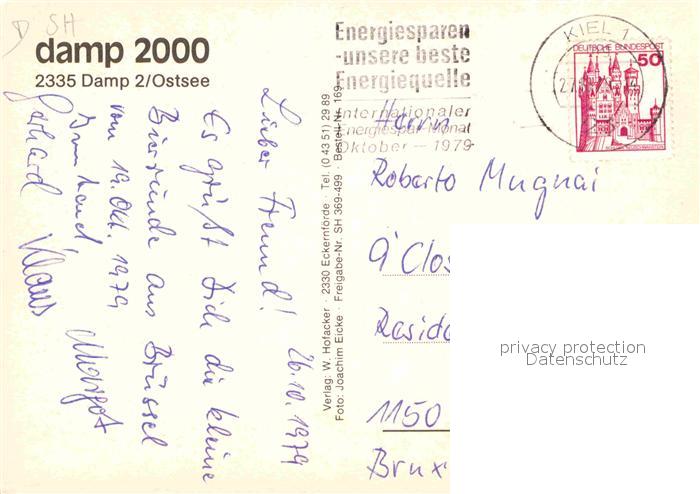 SH
damp 2000
2335 Damp 2/Ostsee
Energiesparen
-unsere beste
Energiequelle
Internationaler
Energiespar-Monat
Oktober – 1979
KIEL 1
DEUTSCHE BUNDESPOST
50
Lieber Freund! 26.10.1979
Es grüßt Dich die kleine
Bierrunde aus Brüssel
vom 19. Okt. 1979
Gerhard Klaus Margot
Verlag: W. Hofacker · 2330 Eckernförde · Tel. (0 43 51) 29 89
Foto: Joachim Eicke · Freigabe-Nr. SH 369-499 · Bestell-Nr. 169
Herrn
Roberto Mugnai
9 Clos
Resid
1150
Brux
privacy protection
Datenschutz